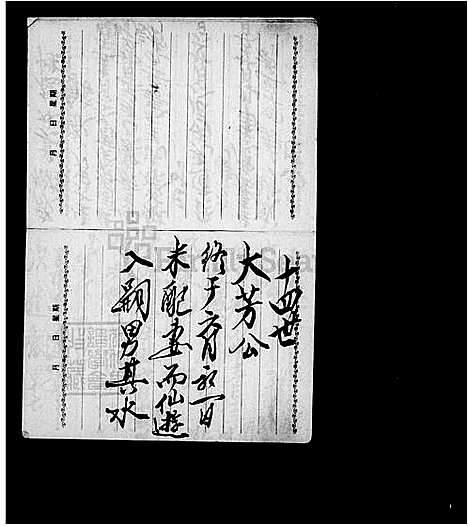 十四世
大芳公
終于六月初一日
未配妻而仙遊
入嗣男其水
月 日 星期
月 日 星期